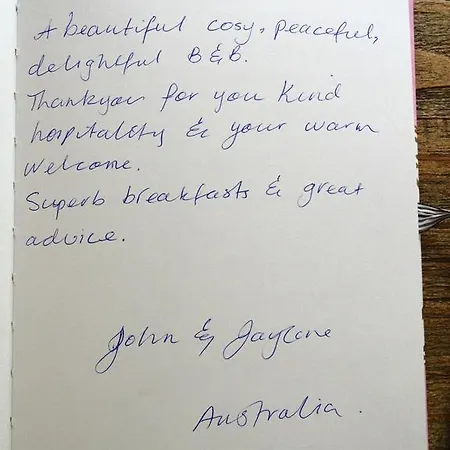 A beautiful cosy, peaceful,
delightful B & B.
Thankyou for you kind
hospitality & your warm
welcome.
Superb breakfasts & great
advice.
John & Jaylene
Australia.